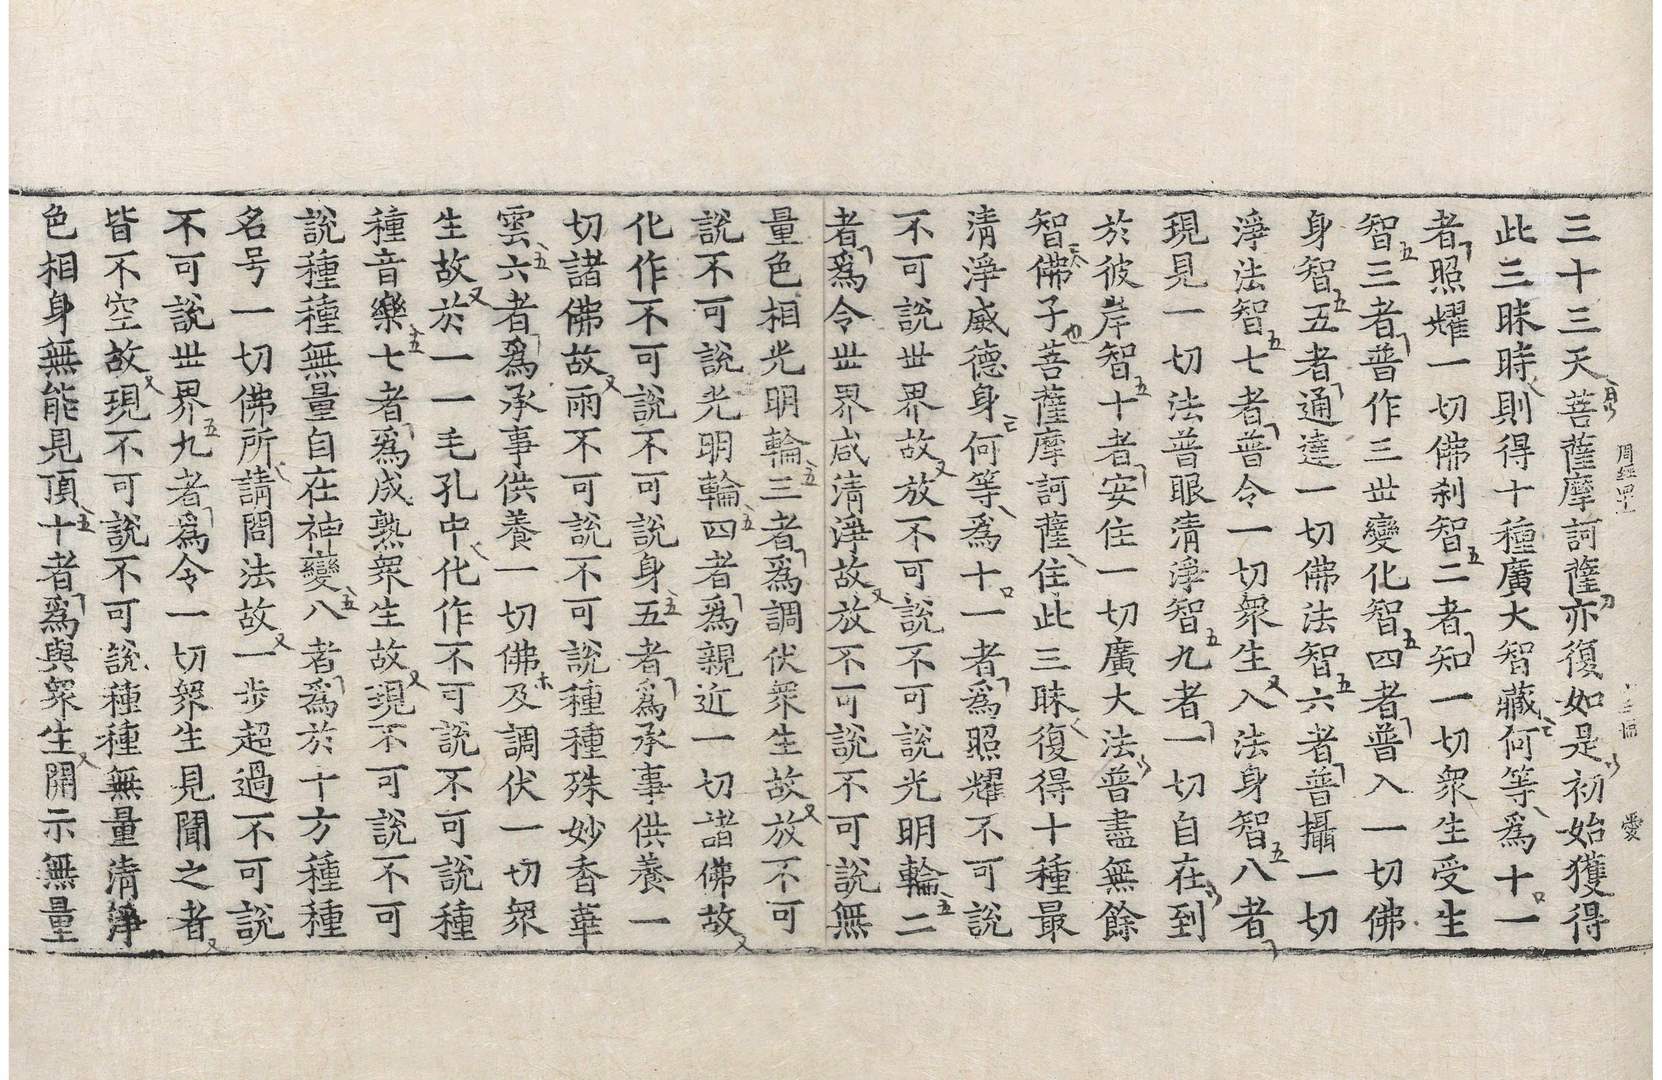 周經 愛
三十三天菩薩摩訶薩亦復如是初始獲得
此三昧時則得十種廣大智藏何等爲十一
者照耀一切佛刹智二者知一切衆生受生
智三者普作三世變化智四者普入一切佛
身智五者通達一切佛法智六者普攝一切
淨法智七者普令一切衆生入法身智八者
現見一切法普眼清淨智九者一切自在到
於彼岸智十者安住一切廣大法普盡無餘
智佛子菩薩摩訶薩住此三昧復得十種最
清淨威德身何等爲十一者爲照耀不可說
不可說世界故放不可說不可說光明輪二
者爲令世界咸清淨故放不可說不可說無
量色相光明輪三者爲調伏衆生故放不可
說不可說光明輪四者爲親近一切諸佛故
化作不可說不可說身五者爲承事供養一
切諸佛故雨不可說不可說種種殊妙香華
雲六者爲承事供養一切佛及調伏一切衆
生故於一一毛孔中化作不可說不可說種
種音樂七者爲成熟衆生故現不可說不可
說種種無量自在神變八者爲於十方種種
名号一切佛所請問法故一步超過不可說
不可說世界九者爲令一切衆生見聞之者
皆不空故現不可說不可說種種無量清淨
色相身無能見頂十者爲與衆生開示無量